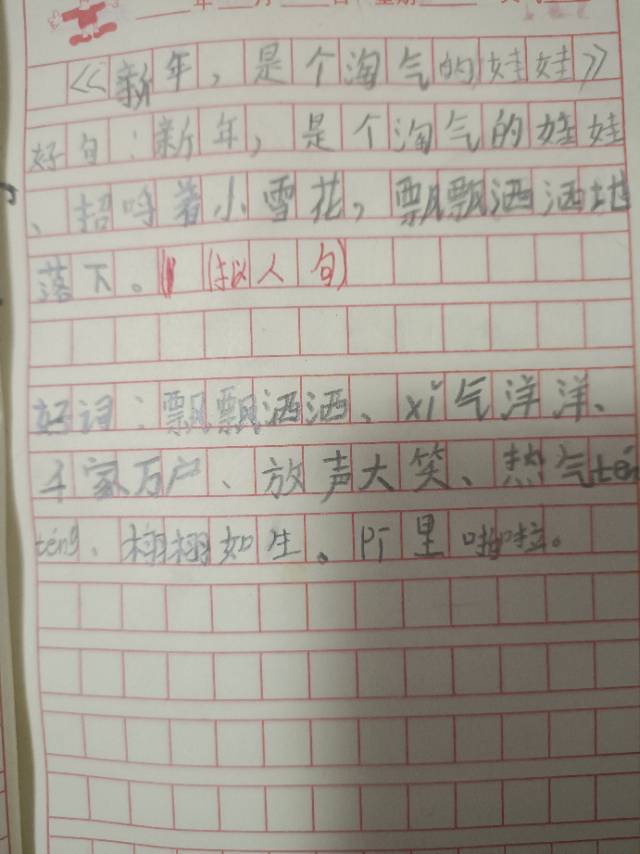 年 月 日 星期
《新年，是个淘气的娃娃》
好句：新年，是个淘气的娃娃
、招呼着小雪花，飘飘洒洒地
落下。（拟人句）
好词：飘飘洒洒、xǐ气洋洋、
千家万户、放声大笑、热气téng
téng、栩栩如生。pī里啪啦。